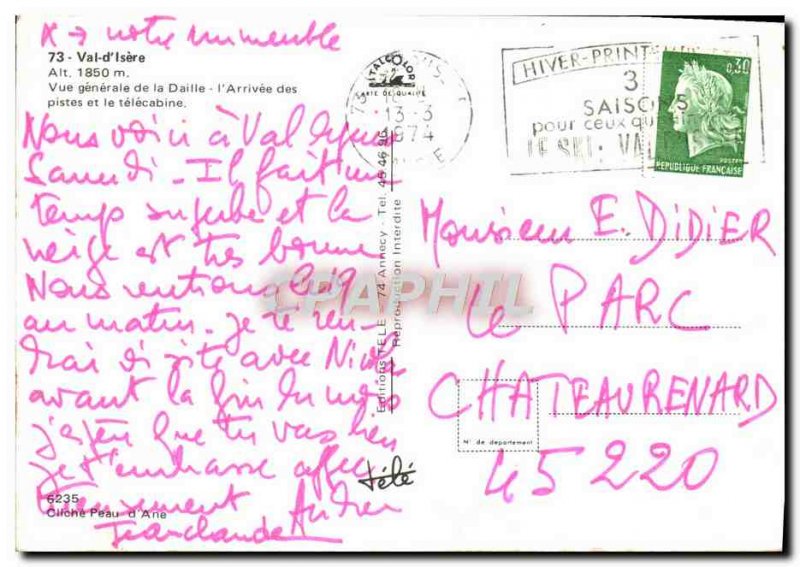 X → notre immeuble
73 - Val-d'Isère
Alt. 1850 m.
Vue générale de la Daille - l'Arrivée des
pistes et le télécabine.
Nous voici à Val depuis
Samedi - Il fait un
temps superbe et la
neige est très bonne
Nous rentrons le 19
au matin. Je te ren-
drai visite avec
avant la fin du mois
j'espère que tu vas bien
je t'embrasse affec
tueusement
6235
Cliché Peau d'Ane
Jean claude
Editions TELE - 74 Annecy - Tel. 45 46 96
Reproduction Interdite
ITALCOLOR
CARTE DE QUALITÉ
Télé
73
13-3
1974
HIVER-PRINTEMPS
3
SAISONS
pour ceux qui
LE SKI: VAL
0,30
POSTES
REPUBLIQUE FRANÇAISE
Monsieur E. DIDIER
le PARC
CHATEAURENARD
N° de département
45220
CPAPHIL